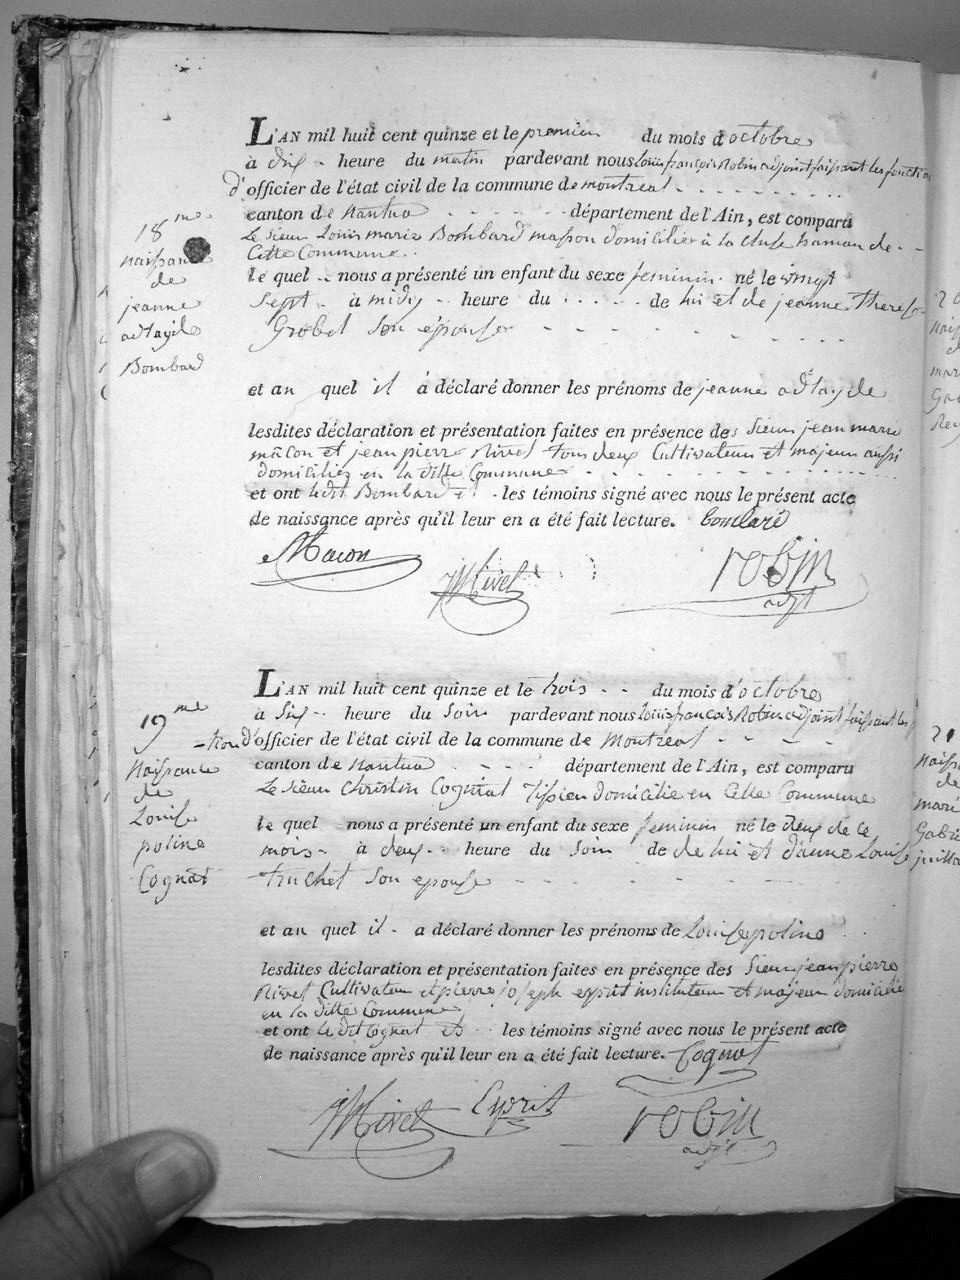 L'AN mil huit cent quinze et le premier du mois d'octobre
à dix heure du matin pardevant nous Louis françois Robin adjoint faisant les fonction
d'officier de l'état civil de la commune de montreal
canton de nantua département de l'Ain, est comparu
18me
Le sieur Louis marie Bombard masson domicilier à la cluse hamau de
naissance
Cette Commune
de
le quel nous a présenté un enfant du sexe feminin né le vingt
jeanne
sept à midy heure du de lui et de jeanne Therese
adtayde
Grobet son épouse
Bombard
et au quel il à déclaré donner les prénoms de jeanne adtayde
lesdites déclaration et présentation faites en présence des sieur jean marie
mâcon et jean pierre Rivet tous deux Cultivateur et majeur aussi
domiciliés en la ditte Commune
et ont ledit Bombard et les témoins signé avec nous le présent acte
de naissance après qu'il leur en a été fait lecture. bombard
Macon
Rivet
robin
adjt
L'AN mil huit cent quinze et le trois du mois d'octobre
19me
à six heure du soir pardevant nous Louis francois Robin adjoint faisant les
-tion d'officier de l'état civil de la commune de Montréal
Naissance
canton de nantua département de l'Ain, est comparu
de
Le sieur Christin Cognat Tissier domicilié en Cette Commune
Louise
le quel nous a présenté un enfant du sexe feminin né le deux de ce
poline
mois à deux heure du soir de de lui et d'anne Louise
Cognat
truchet son epouse
et au quel il a déclaré donner les prénoms de Louise poline
lesdites déclaration et présentation faites en présence des sieur jean pierre
Rivet Cultivateur et pierre joseph esprit instituteur et majeur domicilié
en la ditte Commune
et ont le dit Cognat et les témoins signé avec nous le présent acte
de naissance après qu'il leur en a été fait lecture. Cognat
Rivet Esprit
robin
adjt